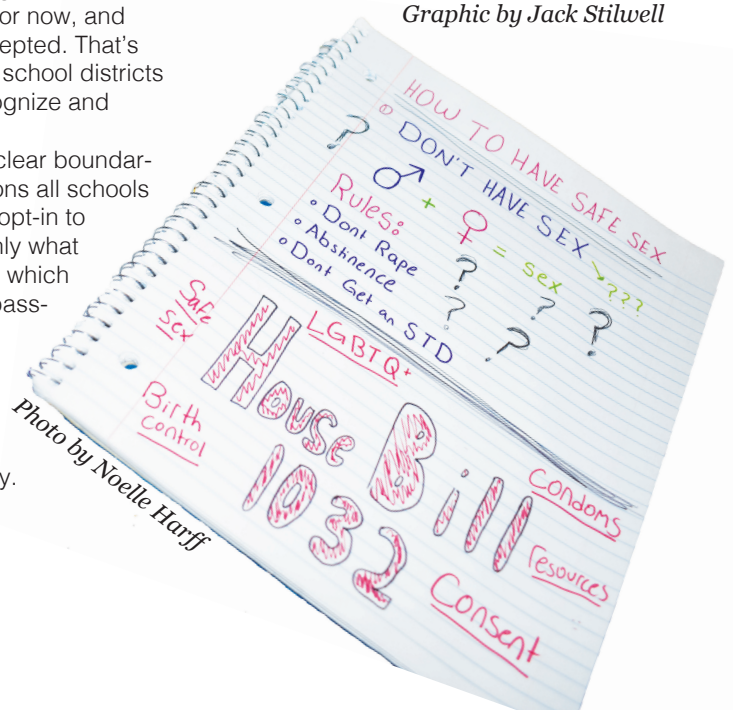 or now, and
epted. That's
school districts
ognize and
clear boundar-
ons all schools
opt-in to
nly what
which
pass-
y.
Graphic by Jack Stilwell
HOW TO HAVE SAFE SEX
① DON'T HAVE SEX
???
?
♂ + ♀ = sex
Rules:
• Dont Rape
• Abstinence
• Dont Get an STD
? ? ? ? ?
Safe
sex
LGBTQ+
Birth
control
House Bill
1032
Condoms
resources
Consent
Photo by Noelle Harff